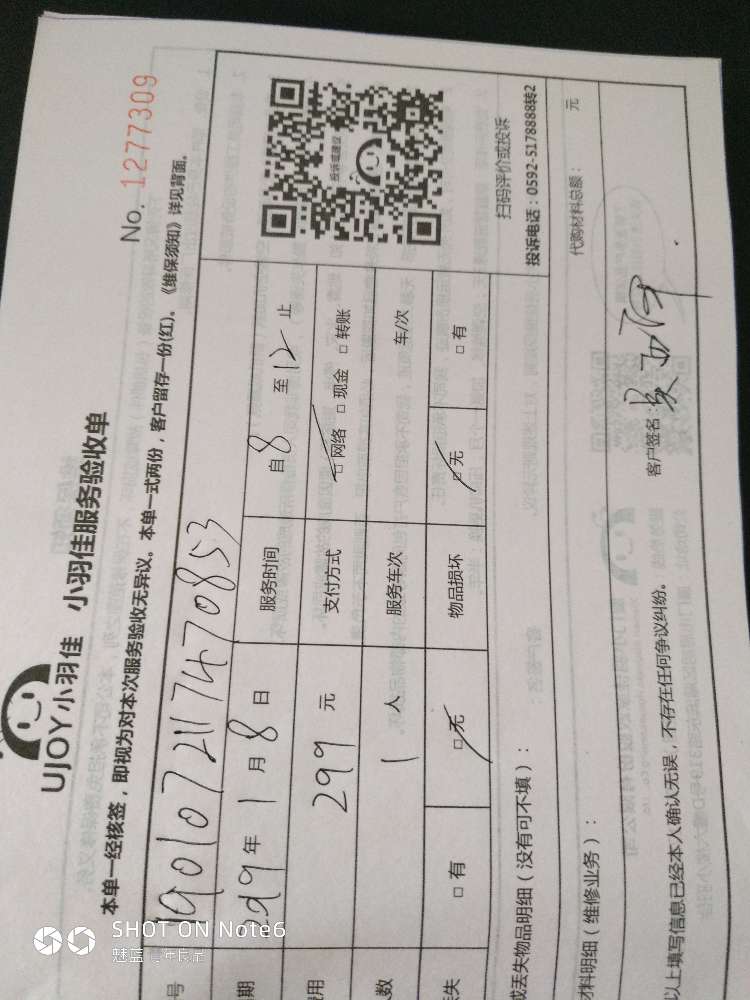 UJOY小羽佳 小羽佳服务验收单
No. 1277309
本单一经核签，即视为对本次服务验收无异议。本单一式两份，客户留存一份(红)。《维保须知》详见背面。
号 1901072117470853
期 2019年1月8日 服务时间 自8至12止
费用 299元 支付方式 □网络 □现金 □转账
人数 1人 服务车次 车/次
丢失 □有 □无 物品损坏 □无 □有
投诉或建议
扫码评价或投诉
投诉电话：0592-5178888转2
或丢失物品明细（没有可不填）：
材料明细（维修业务）： 代购材料总额： 元
以上填写信息已经本人确认无误，不存在任何争议纠纷。 客户签名：
SHOT ON Note6
魅蓝